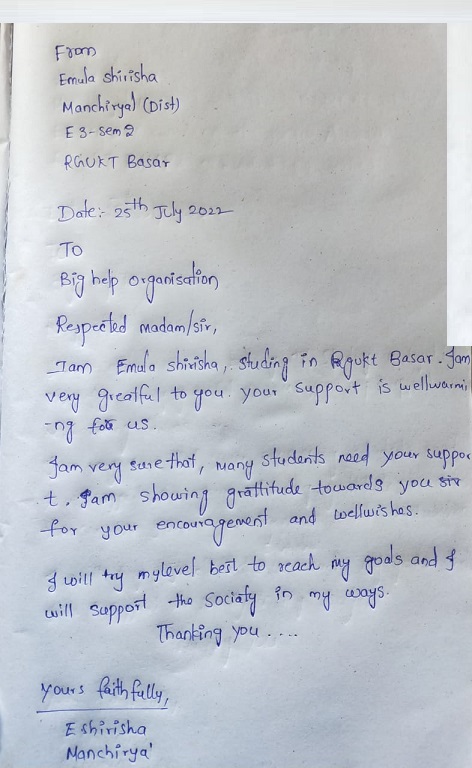 From
Emula shirisha
Manchiryal (Dist)
E3-sem2
RGUKT Basar
Date:- 25th July 2022
To
Big help organisation
Respected madam/sir,
Iam Emula shirisha, studing in Rgukt Basar. Iam
very greatful to you. your support is wellwarmi
-ng for us.
Iam very sure that, many students need your suppor
t. Iam showing grattitude towards you sir
for your encouragement and wellwishes.
I will try mylevel best to reach my goals and I
will support the Sociaty in my ways.
Thanking you ....
yours faithfully,
E shirisha
Manchirya'